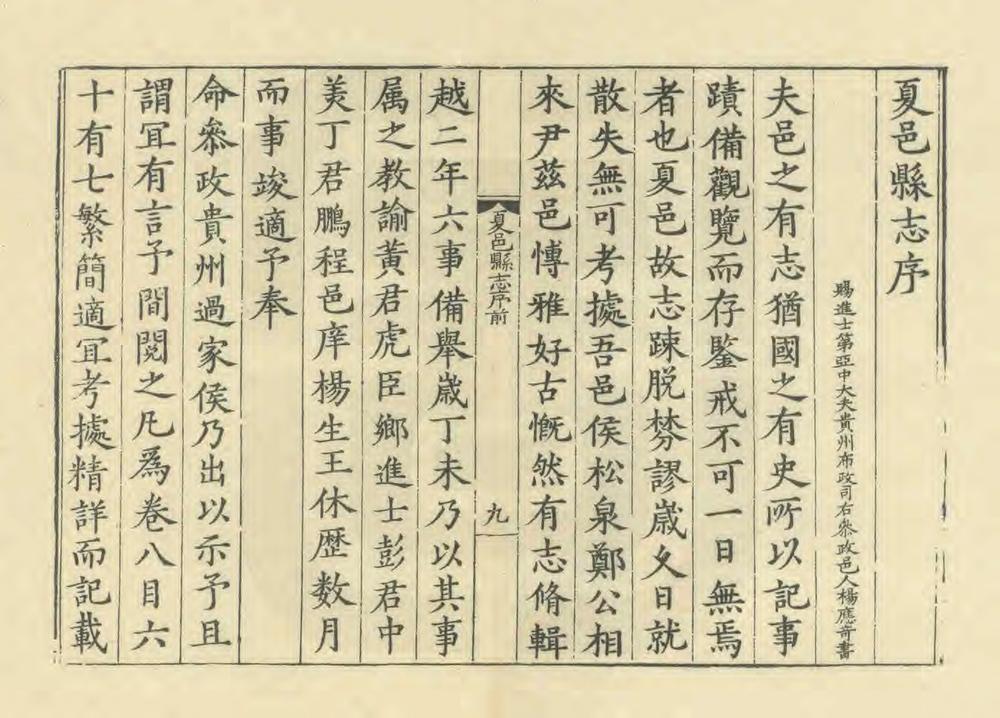 夏邑縣志序
賜進士第亞中大夫貴州布政司右叅政邑人楊應奇書
夫邑之有志猶國之有史所以記事
蹟備觀覽而存鍳戒不可一日無焉
者也夏邑故志踈脫棼謬歲久日就
散失無可考據吾邑侯松泉鄭公相
來尹茲邑愽雅好古慨然有志脩輯
夏邑縣志序前
九
越二年六事備舉歲丁未乃以其事
属之教諭黃君虎臣鄉進士彭君中
美丁君鵬程邑庠楊生王休歷数月
而事竣適予奉
命叅政貴州過家侯乃出以示予且
謂冝有言予間閱之凡為卷八目六
十有七繁簡適冝考據精詳而記載